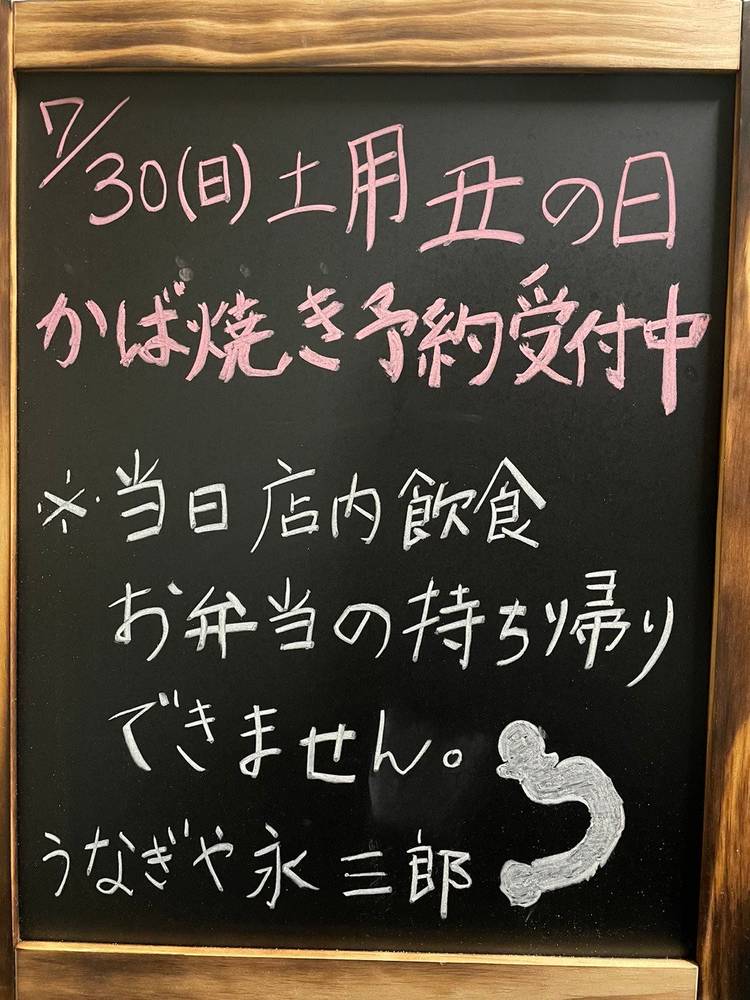 7/30(日)土用丑の日
かば焼き予約受付中
※当日店内飲食
お弁当の持ち帰り
できません。
うなぎや永三郎